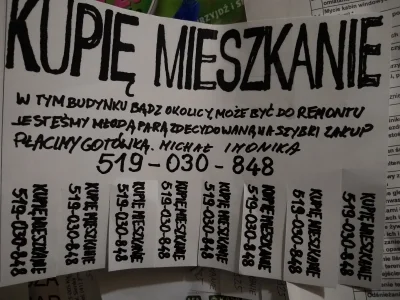 KUPIĘ MIESZKANIE
W TYM BUDYNKU BĄDZ OKOLICY, MOŻE BYĆ DO REMONTU
JESTEŚMY MŁODĄ PARĄ ZDECYDOWANĄ NA SZYBKI ZAKUP
PŁACIMY GOTÓWKĄ. MICHAŁ I MONIKA
519-030-848
KUPIĘ MIESZKANIE
519-030-848
KUPIĘ MIESZKANIE
519-030-848
KUPIĘ MIESZKANIE
519-030-848
KUPIĘ MIESZKANIE
519-030-848
KUPIĘ MIESZKANIE
519-030-848
KUPIĘ MIESZKANIE
519-030-848
KUPIĘ MIESZKANIE
519-030-848